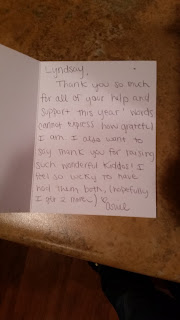 Lyndsay,
Thank you so much
for all of your help and
support this year! Words
cannot express how grateful
I am. I also want to
say thank you for raising
such wonderful kiddos! I
feel so lucky to have
had them both, (hopefully
I get 2 more!)